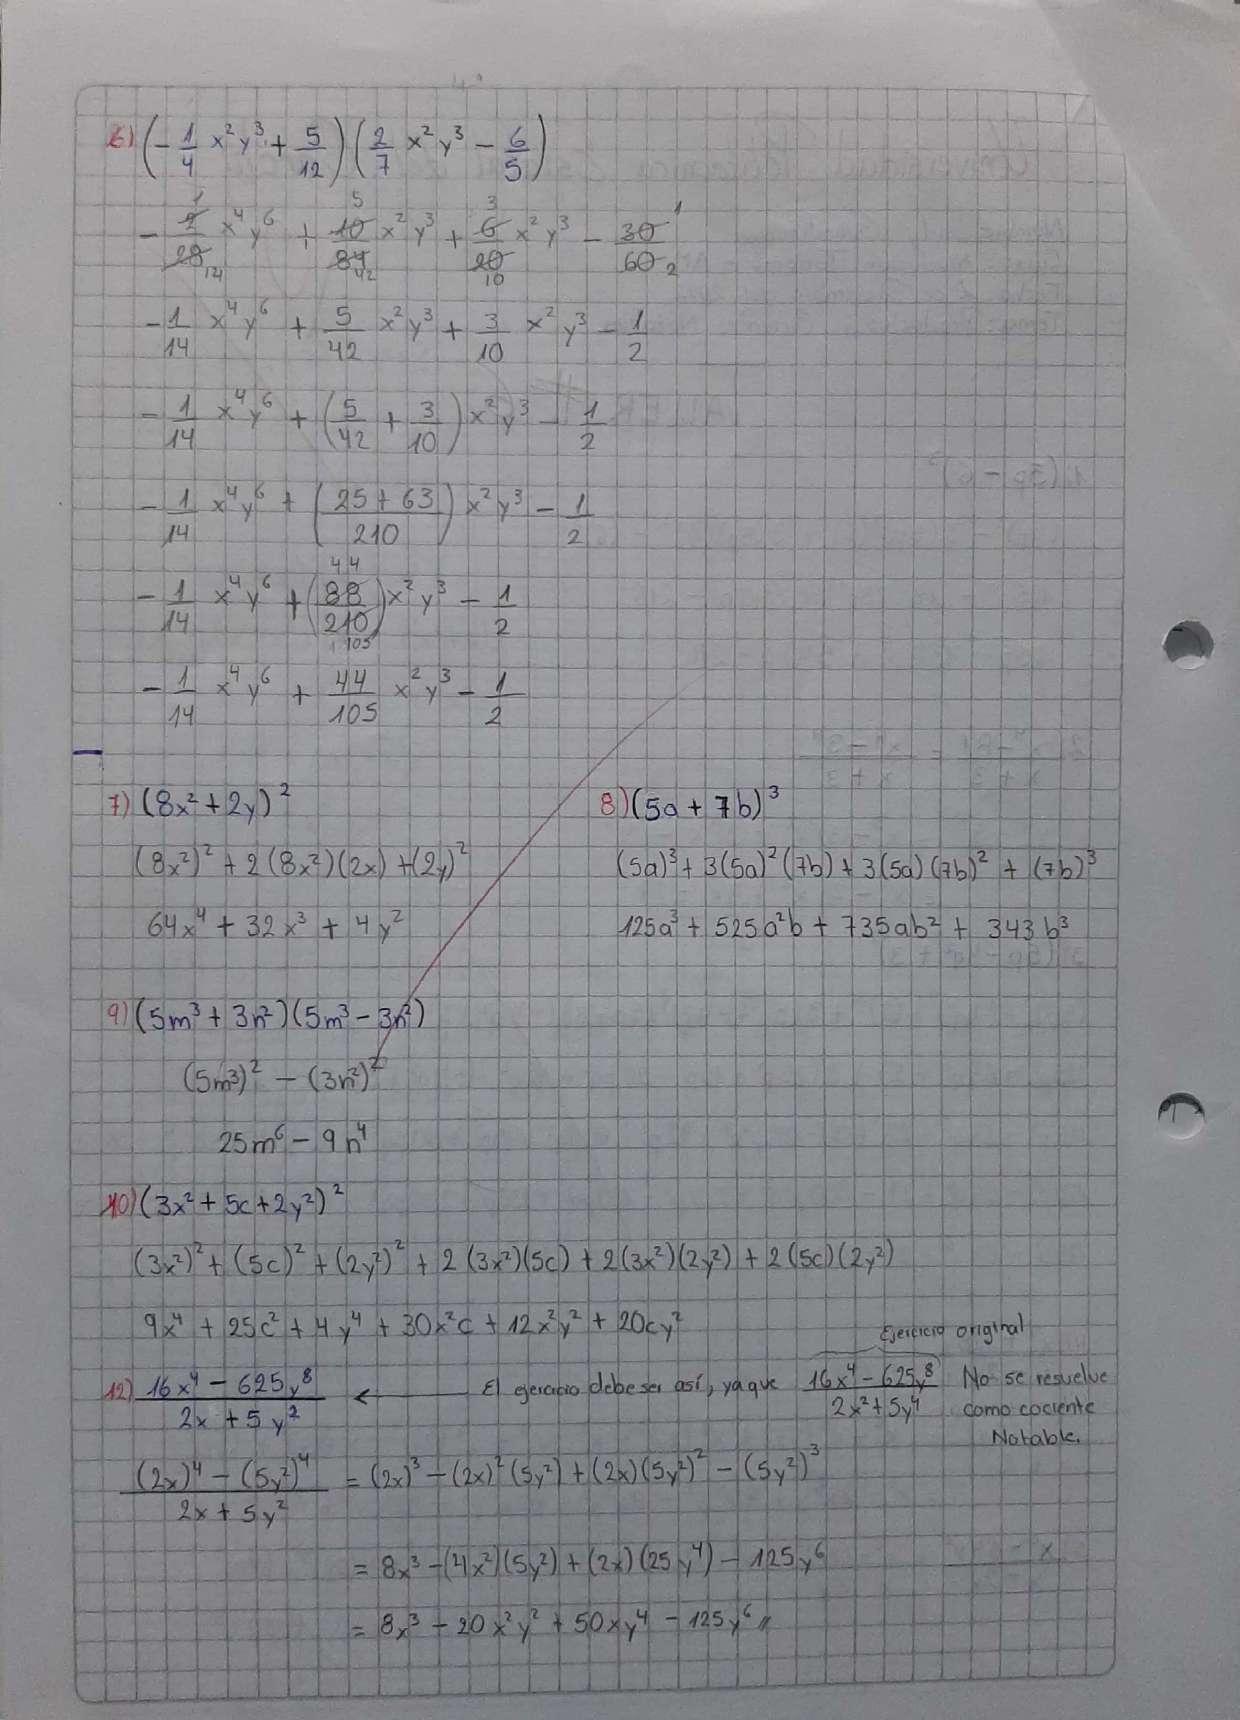 6) (-1/4 x²y³ + 5/12)(2/7 x²y³ - 6/5)
- 2/28 x⁴y⁶ + 10/84 x²y³ + 6/20 x²y³ - 30/60
-1/14 x⁴y⁶ + 5/42 x²y³ + 3/10 x²y³ - 1/2
-1/14 x⁴y⁶ + (5/42 + 3/10) x²y³ - 1/2
-1/14 x⁴y⁶ + (25+63/210) x²y³ - 1/2
-1/14 x⁴y⁶ + (88/210) x²y³ - 1/2
-1/14 x⁴y⁶ + 44/105 x²y³ - 1/2
7) (8x² + 2y)²
(8x²)² + 2(8x²)(2x) + (2y)²
64x⁴ + 32x³ + 4y²
8) (5a + 7b)³
(5a)³ + 3(5a)²(7b) + 3(5a)(7b)² + (7b)³
125a³ + 525a²b + 735ab² + 343b³
9) (5m³ + 3n²)(5m³ - 3n²)
(5m³)² - (3n²)²
25m⁶ - 9n⁴
10) (3x² + 5c + 2y²)²
(3x²)² + (5c)² + (2y²)² + 2(3x²)(5c) + 2(3x²)(2y²) + 2(5c)(2y²)
9x⁴ + 25c² + 4y⁴ + 30x²c + 12x²y² + 20cy²
Ejercicio original
12) 16x⁴ - 625y⁸ / 2x + 5y² ← El ejercicio debe ser así, ya que 16x⁴ - 625y⁸ / 2x² + 5y⁴ No se resuelve
como cociente
Notable.
(2x)⁴ - (5y²)⁴ / 2x + 5y² = (2x)³ - (2x)²(5y²) + (2x)(5y²)² - (5y²)³
= 8x³ - (4x²)(5y²) + (2x)(25y⁴) - 125y⁶
= 8x³ - 20x²y² + 50xy⁴ - 125y⁶ //